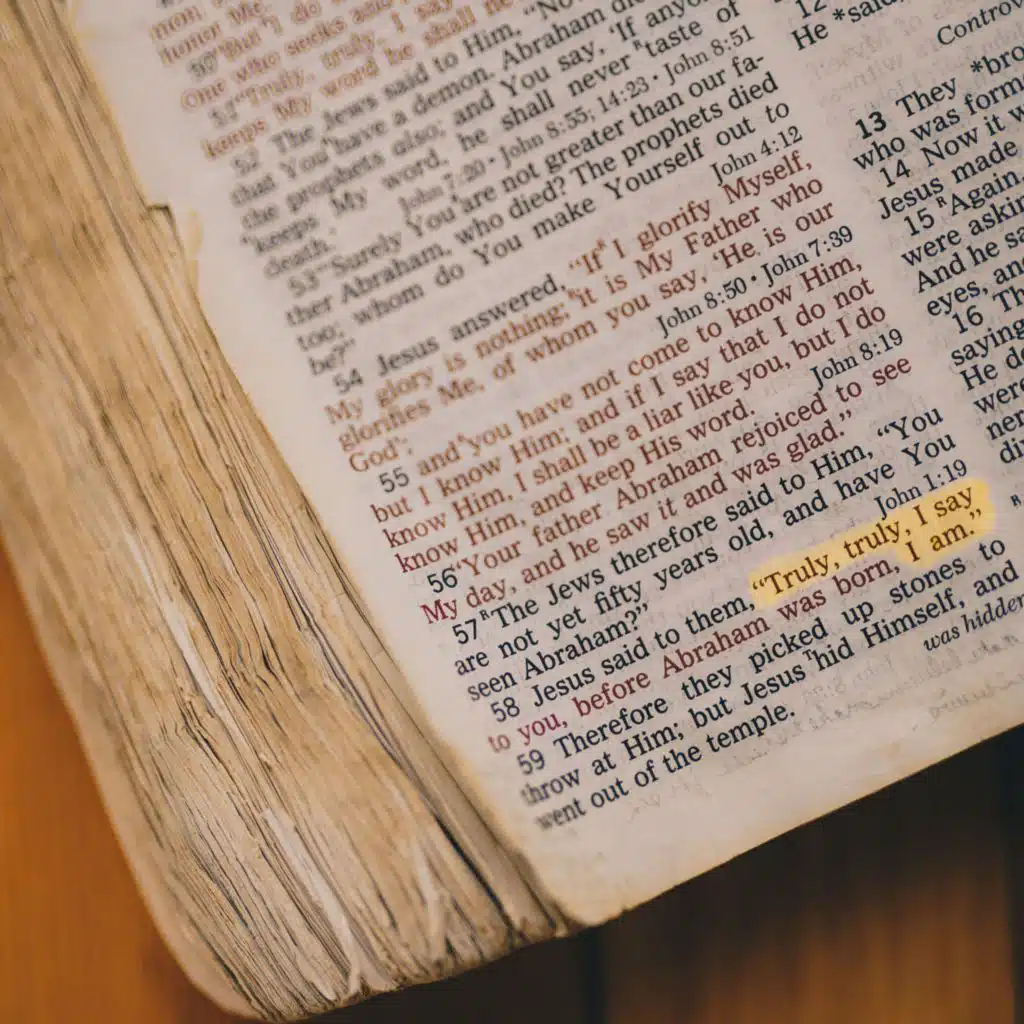 honor Me.
50 "But I do
One who seeks and
51 "Truly, truly, I say
keeps My word he shall ne
52 The Jews said to Him, "No
that You have a demon. Abraham die
the prophets also; and You say, 'If anyo
'keeps My word, he shall never R taste of
death.'
John 7:20 • John 8:55; 14:23 • John 8:51
53 "Surely You are not greater than our fa-
ther Abraham, who died? The prophets died
too; whom do You make Yourself out to
be?"
John 4:12
54 Jesus answered, "If R I glorify Myself,
My glory is nothing; R it is My Father who
glorifies Me, of whom you say, 'He is our
God';
John 8:50 • John 7:39
55 and R you have not come to know Him,
but I know Him; and if I say that I do not
know Him, I shall be a liar like you, but I do
know Him, and keep His word.
John 8:19
56 "Your father Abraham rejoiced to see
My day, and he saw it and was glad."
57 R "The Jews therefore said to Him, "You
are not yet fifty years old, and have You
seen Abraham?"
John 1:19
58 Jesus said to them, "Truly, truly, I say
to you, before Abraham was born, I am."
59 Therefore they picked up stones to
throw at Him; but Jesus T hid Himself, and
went out of the temple.
was hidden
12
He *said
Controv
13 They *bro
who was form
14 Now it w
Jesus made
15 R Again,
were askin
And he sa
eyes, and
16 Th
saying
He do
were
ner
din
R